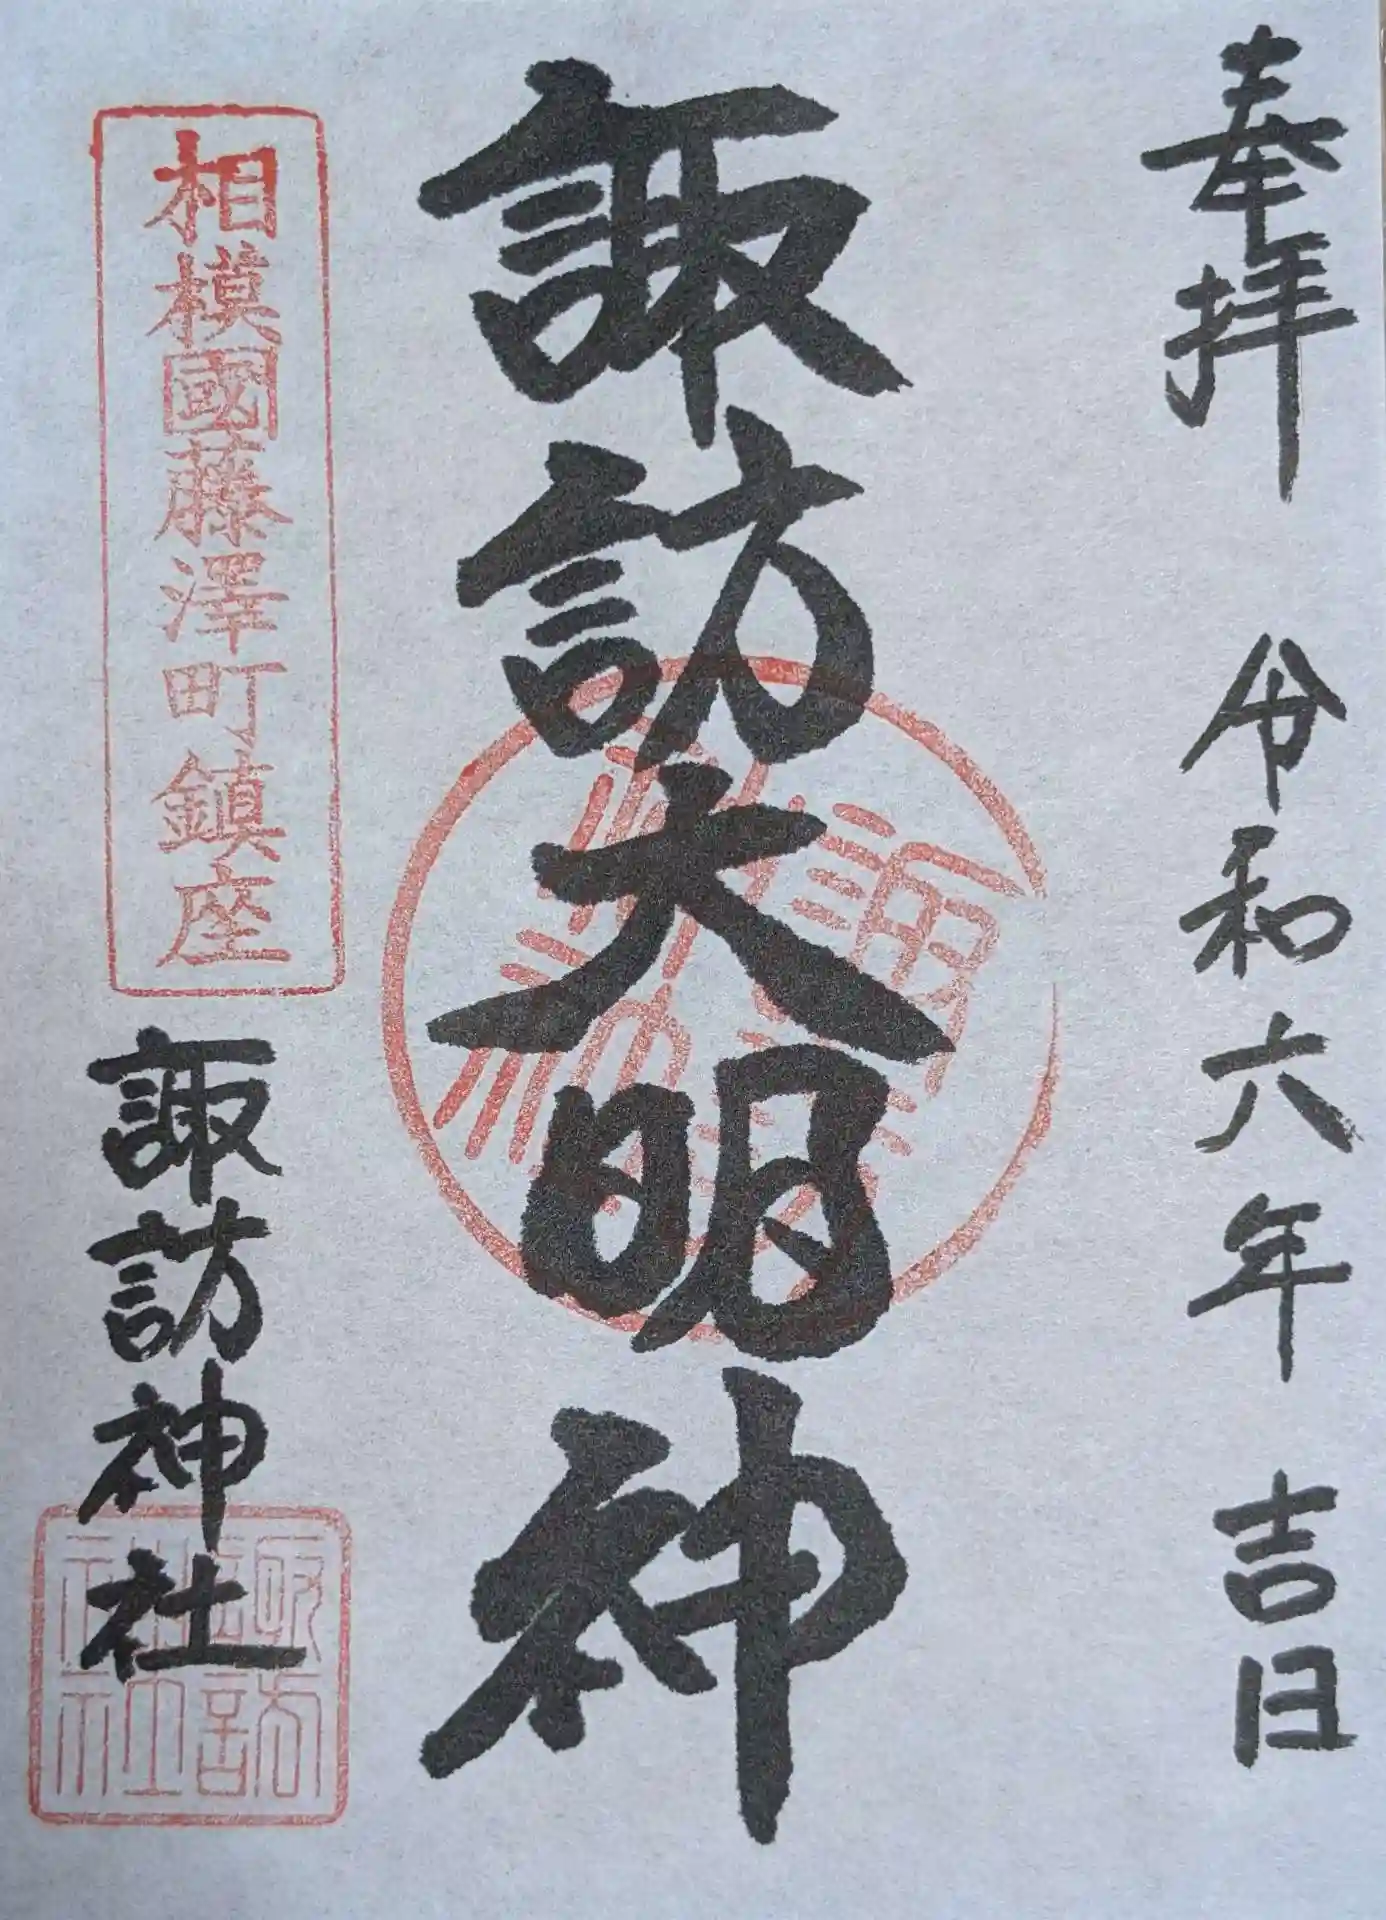 奉拝 令和六年 吉日
諏訪大明神
相模國藤澤町鎮座
諏訪神社
諏訪
神社